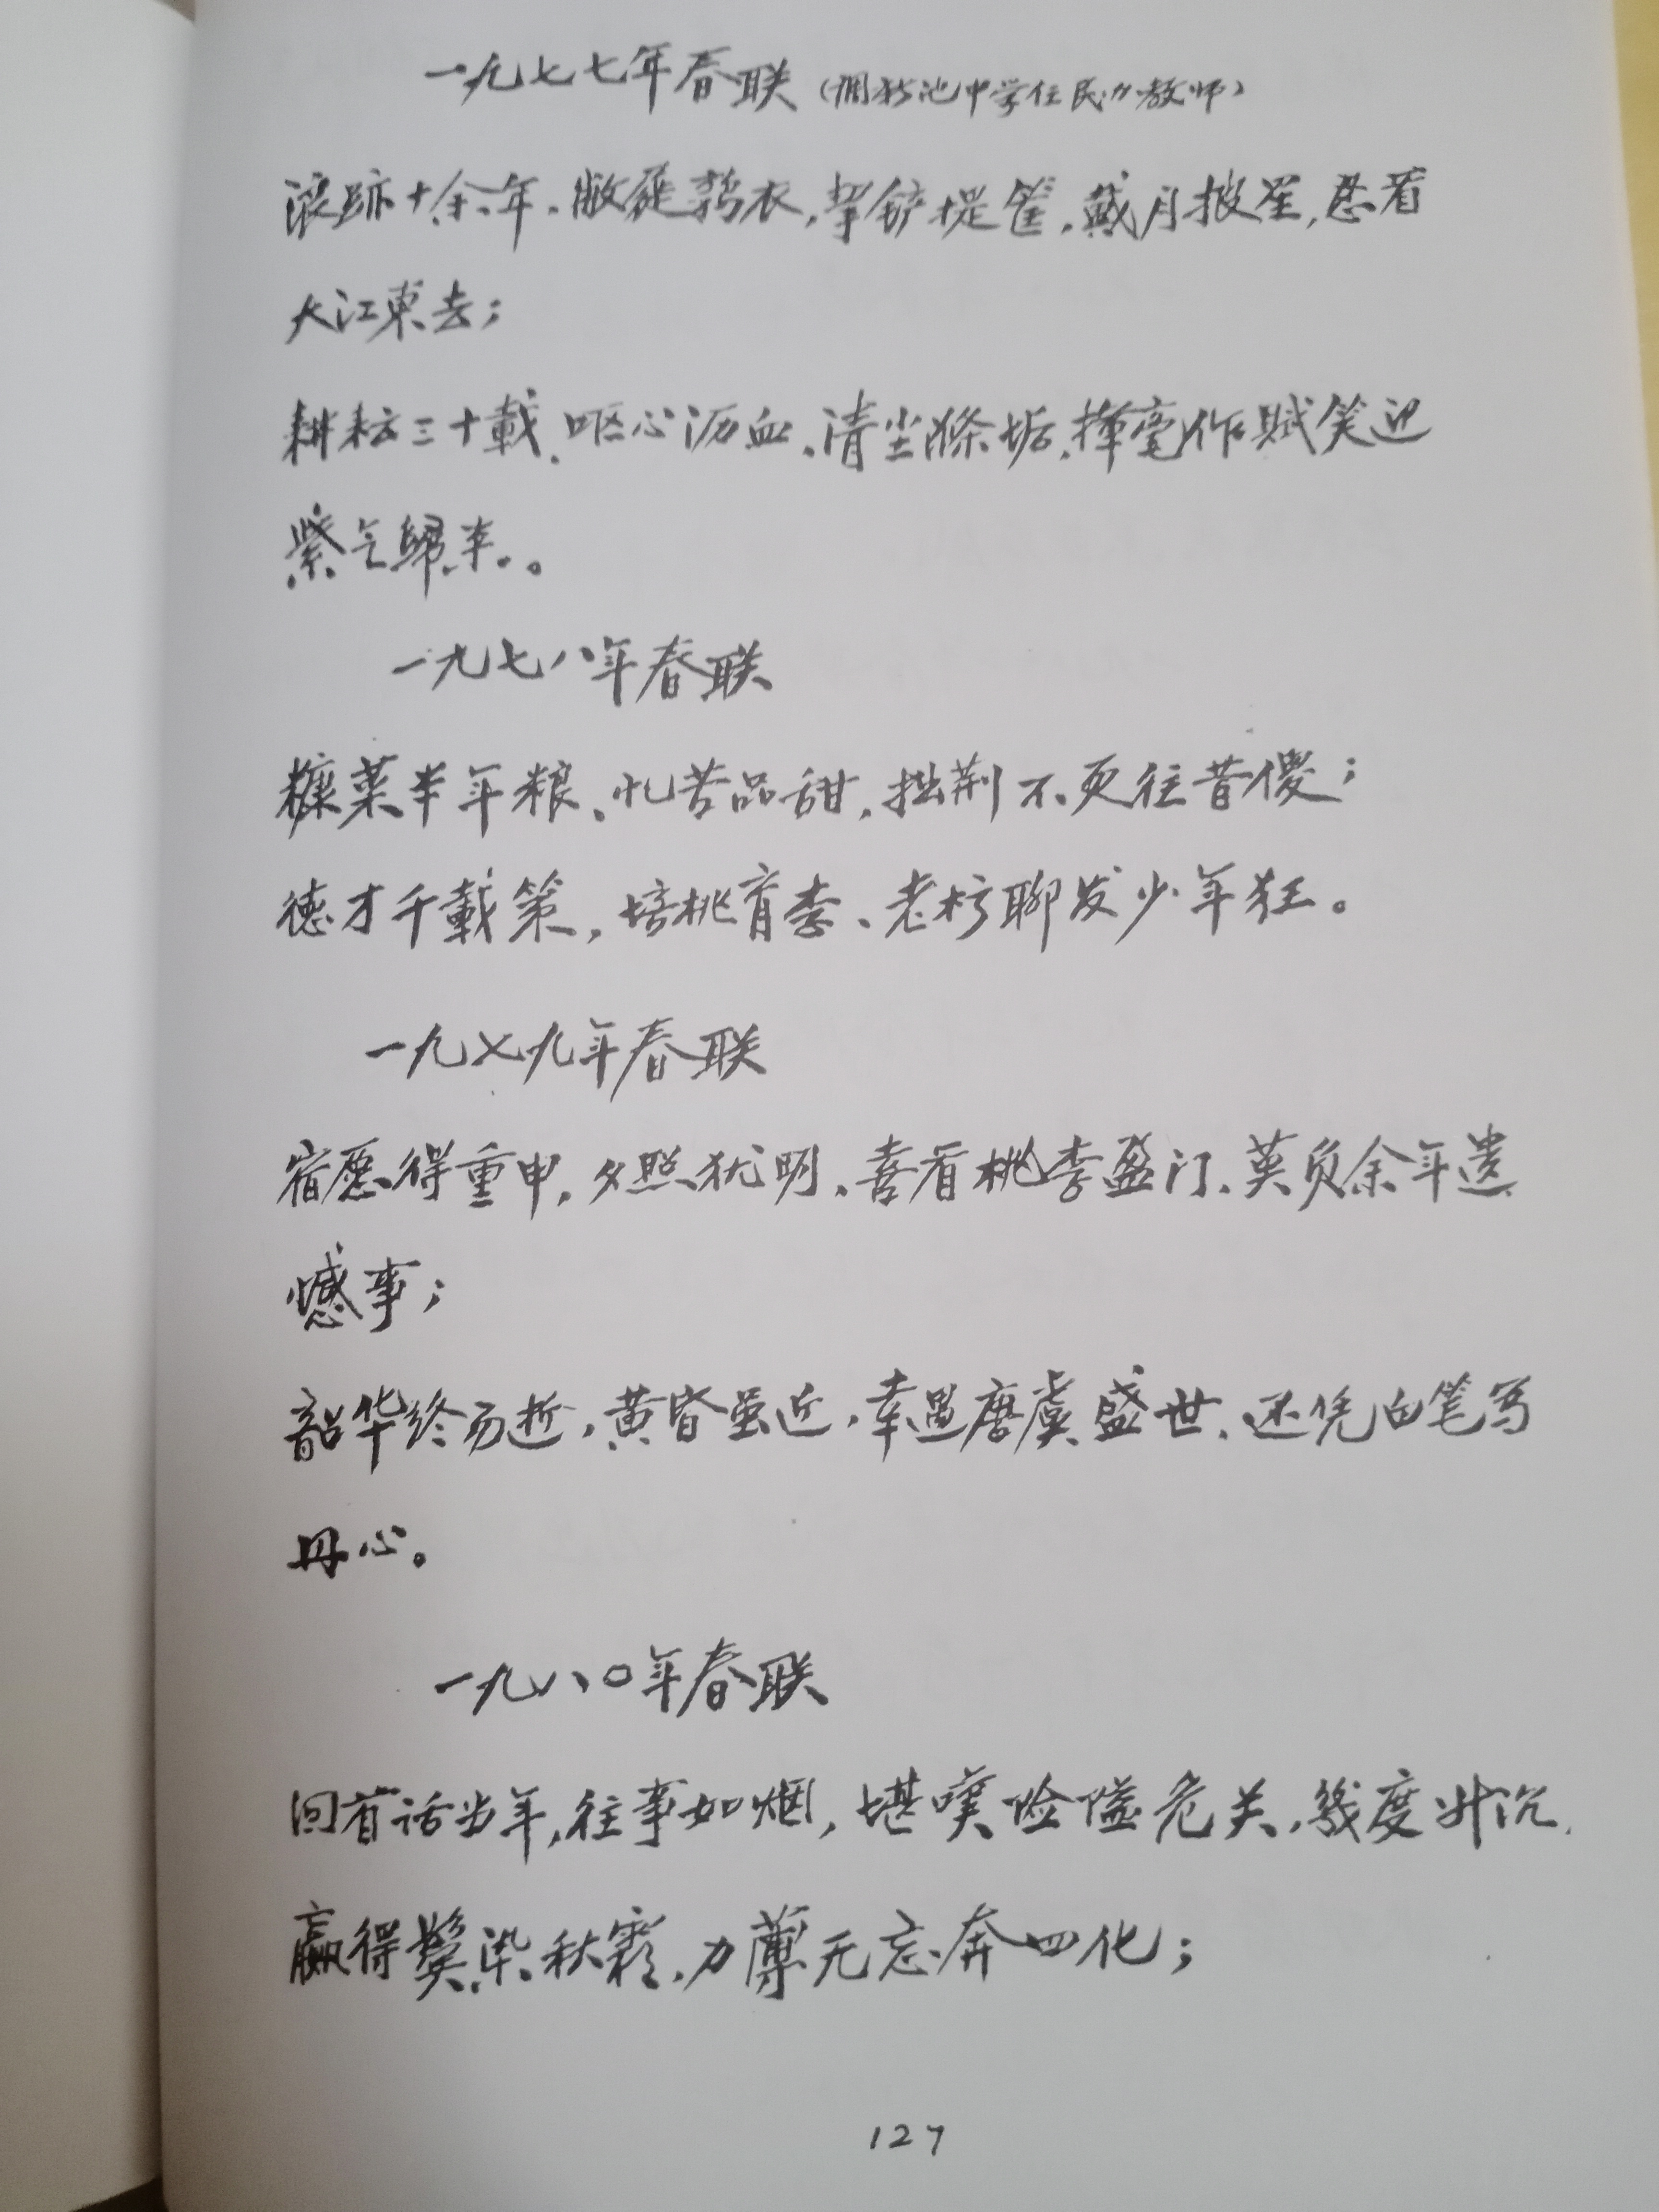 一九七七年春联（调新池中学任民办教师）
浪跡十余年，敝屣鹑衣，挈铲提筐，戴月披星，忍看
大江東去；
耕耘三十載，呕心沥血，清尘滌垢，揮毫作賦笑迎
紫气歸来。
一九七八年春联
糠菜半年粮、忆苦品甜，拙荆不更往昔傻；
德才千載策，培桃育李、老朽聊发少年狂。
一九七九年春联
宿愿得重申，夕照犹明，喜看桃李盈门、莫负余年遗
憾事；
韶华终易逝，黄昏虽近，幸遇唐虞盛世，还凭白笔写
丹心。
一九八〇年春联
回首话当年，往事如烟，堪嘆险隘危关，幾度升沉，
赢得鬓染秋霜，力薄无忘奔四化；
127